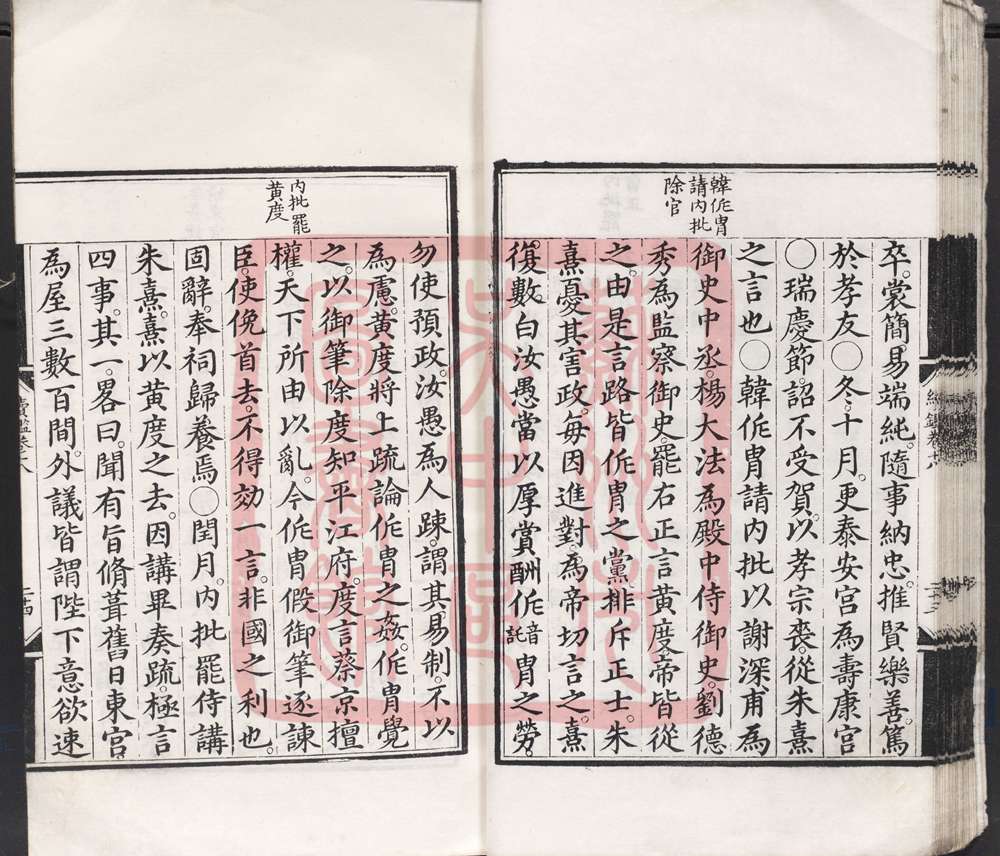 韓侂冑
請內批
除官
卒。裳簡易端純。隨事納忠。推賢樂善。篤
於孝友〇冬。十月。更泰安宮為壽康宮
〇瑞慶節。詔不受賀。以孝宗喪。從朱熹
之言也〇韓侂冑請內批以謝深甫為
御史中丞。楊大法為殿中侍御史。劉德
秀為監察御史。罷右正言黃度。帝皆從
之。由是言路皆侂冑之黨。排斥正士。朱
熹憂其害政。每因進對。為帝切言之。熹
復。數。白汝愚當以厚賞酬侂音託冑之勞。
內批罷
黃度
勿使預政。汝愚為人疎。謂其易制。不以
為慮。黃度將上疏論侂冑之姦。侂冑覺
之。以御筆除度知平江府。度言蔡京擅
權。天下所由以亂。今侂冑假御筆逐諫
臣。使俛首去。不得効一言。非國之利也。
固辭。奉祠歸養焉〇閏月。內批罷侍講
朱熹。熹以黃度之去。因講畢奏疏。極言
四事。其一。畧曰。聞有旨脩葺舊日東宮。
為屋三數百間。外議皆謂陛下意欲速